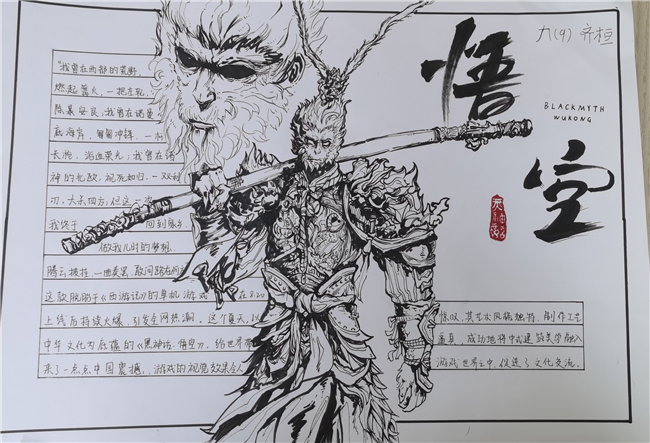 九(9) 齐桓
悟空
BLACKMYTH
WUKONG
"我曾在西部的荒野,
燃起篝火,一把左轮,
除暴安良;我曾在诺曼
底海岸,匍匐冲锋,一杆
长枪,浴血荣光;我曾在诸
神的北欧,视死如归,一双
刃,大杀四方;但这一次
我终于 回到家乡
做我儿时的梦想
腾云拨挂,一曲卖罢,敢问路在何
这款脱胎于《西游记》的单机游戏 在8.20
上线后持续火爆,引发全网热潮。这个夏天,以
中华文化为底蕴的《黑神话:悟空》,给世界带
来了一点点中国震撼,游戏的视觉效果令人
惊叹,其艺术风格独特,制作工艺
逼真,成功地将中式建筑美学融入
游戏世界之中,促进了文化交流。